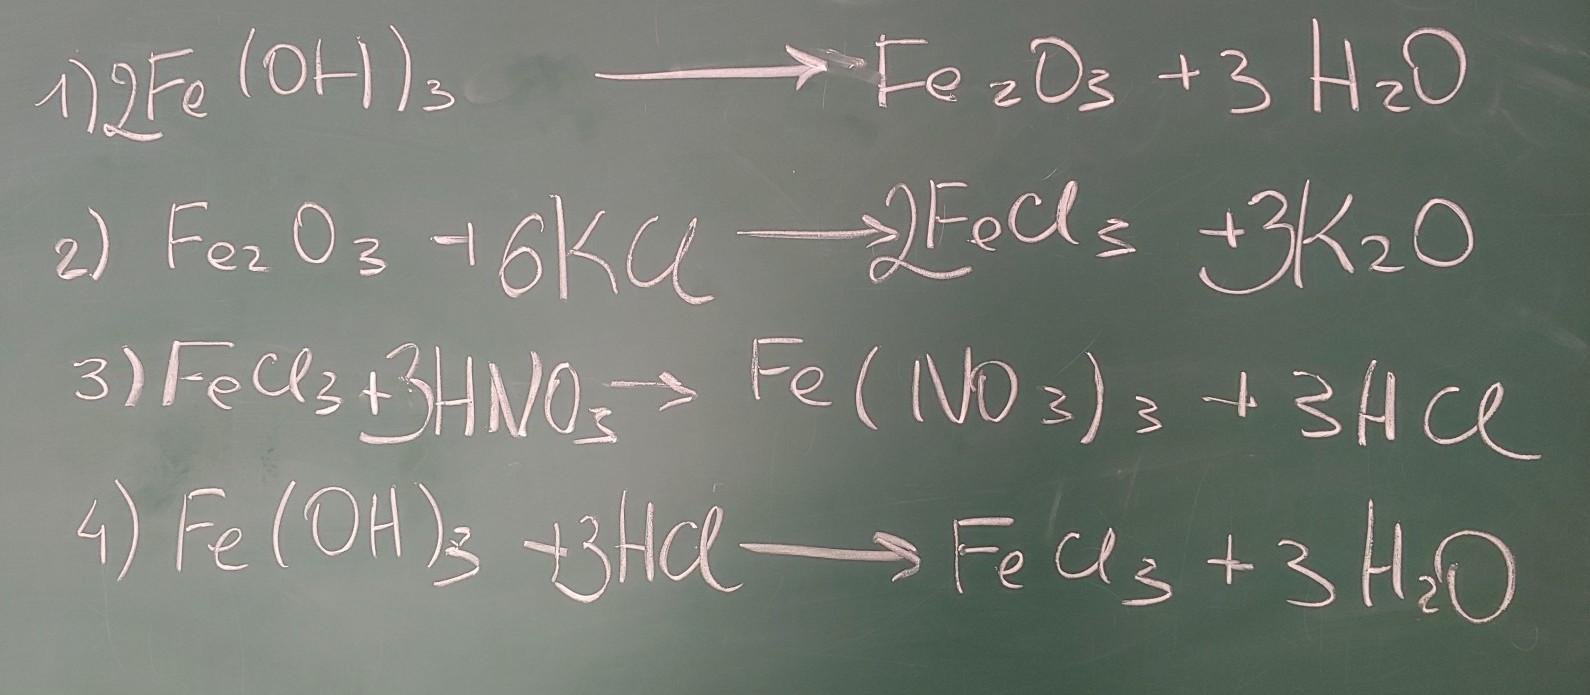 1) 2Fe(OH)₃ → Fe₂O₃ + 3H₂O
2) Fe₂O₃ + 6KCl → 2FeCl₃ + 3K₂O
3) FeCl₃ + 3HNO₃ → Fe(NO₃)₃ + 3HCl
4) Fe(OH)₃ + 3HCl → FeCl₃ + 3H₂O